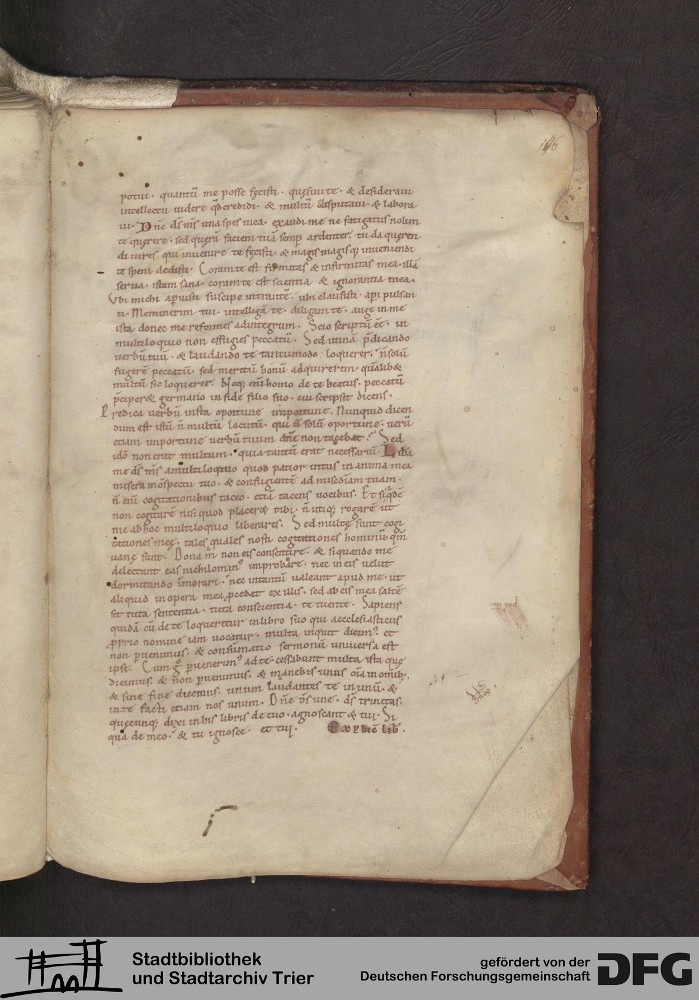 146
potui · quantū me posse fecisti · quesiui te · & desideraui
intellectu uidere qd credidi · & multū disputaui · & labora
ui · Dne ds ms una spes mea · exaudi me ne fatigatus nolim
te querere · sed querā faciem tuā semp ardenter · tu da queren
di uires qui inuenire te fecisti · & magis magisq; inueniendi
te spem dedisti · Coram te est firmitas & infirmitas mea · illā
serua · istam sana · coram te est scientia & ignorantia mea ·
Vbi michi aperuisti suscipe intrantē · ubi clausisti · aperi pulsan
ti · Meminerim tui · intelligā te · diligam te · auge in me
ista donec me reformes ad integrum · Scio scriptū eē · in
multiloquio non effugies peccatū · Sed utinā pdicando
uerbū tuū · & laudando te tantumodo loquerer · n solū
fugerē peccatū · sed meritū bonū adquirerem · qualib&
multū sic loquerer · Neq; enī homo de te beatus · peccatū
peiper& germano in fide filio suo · cui scripsit dicens ·
Predica uerbū insta oportune importune · Nunquid dicen
dum est istū n multū locutū · qui n solū oportune · uerū
etiam importune uerbū tuum dne non tacebat · Sed
ido non erat multum · quia tantū erat necessariū · Liba
me ds ms a multiloquio quod patior intus in anima mea
misera in cspectu tuo · & confugiente ad misediam tuam ·
n enī cogitationibus taceo · etiā tacens uocibus · Et siqde
non cogitarē nisi quod placer& tibi · n utiq; rogarē ut
me ab hoc multiloquio liberares · Sed multe sunt cogi
tationes mee · tales quales nosti cogitationes hominū qm
uane sunt · Dona m non eis consentire · & si quando me
delectant eas nichilomin improbare · nec in eis uelut
dormitando inmorari · nec in tantū ualeant apud me · ut
aliquid in opera mea pcedat ex illis · sed ab eis mea saltē
sit tuta sententia · tuta conscientia · te tuente · Sapiens
quidā cū de te loqueretur in libro suo qui ecclesiasticus
pprio nomine iam uocatur · multa inquit dicim · et
non puenimus · & consumatio sermonū uniuersa est
ipse · Cum g puenerim ad te · cessabunt multa ista que
dicimus · & n puenimus · & manebis unus oīa in omīb ·
& sine fine dicemus · unum laudantes te in unū · &
in te facti etiam nos unum · Dne ds une · ds trinitas ·
quecunq; dixi in his libris de tuo · agnoscant & tui · Si
qua de meo · & tu ignosce · et tui · Explic lib ·
Stadtbibliothek
und Stadtarchiv Trier
gefördert von der
Deutschen Forschungsgemeinschaft
DFG